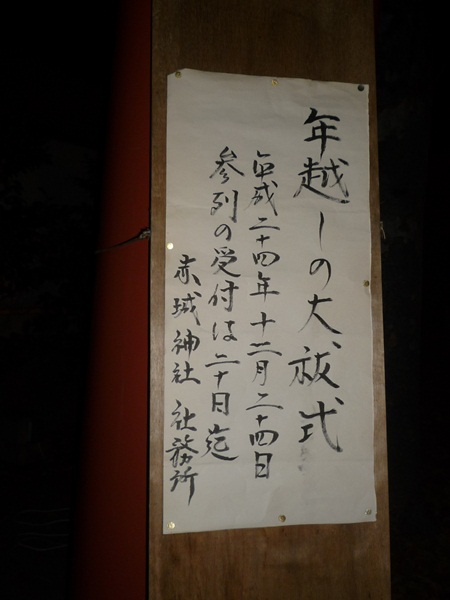 年越しの大祓式
平成二十四年十二月二十四日
参列の受付は二十日迄
赤城神社 社務所